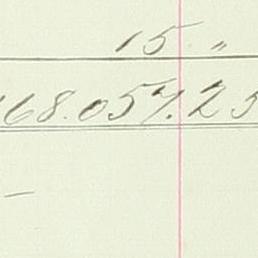 15 „
168.057.25
—